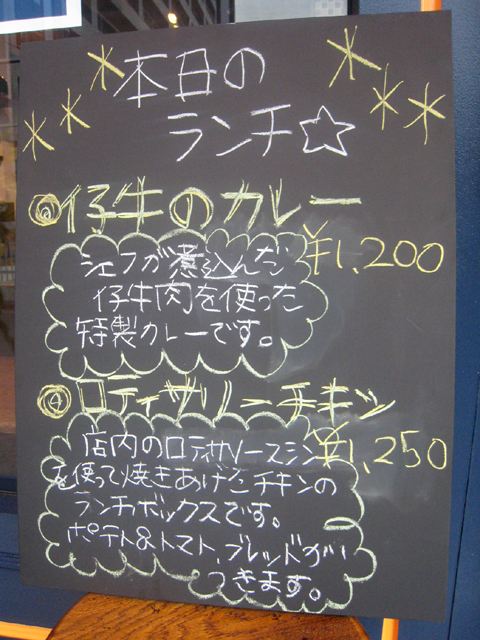 本日の
ランチ☆
③仔牛のカレー
¥1,200
シェフが煮込んだ
仔牛肉を使った
特製カレーです。
④ロティサリーチキン
¥1,250
店内のロティサリースマシン
を使って焼きあげたチキンの
ランチボックスです。
ポテト&トマト、ブレッドがい
つきます。